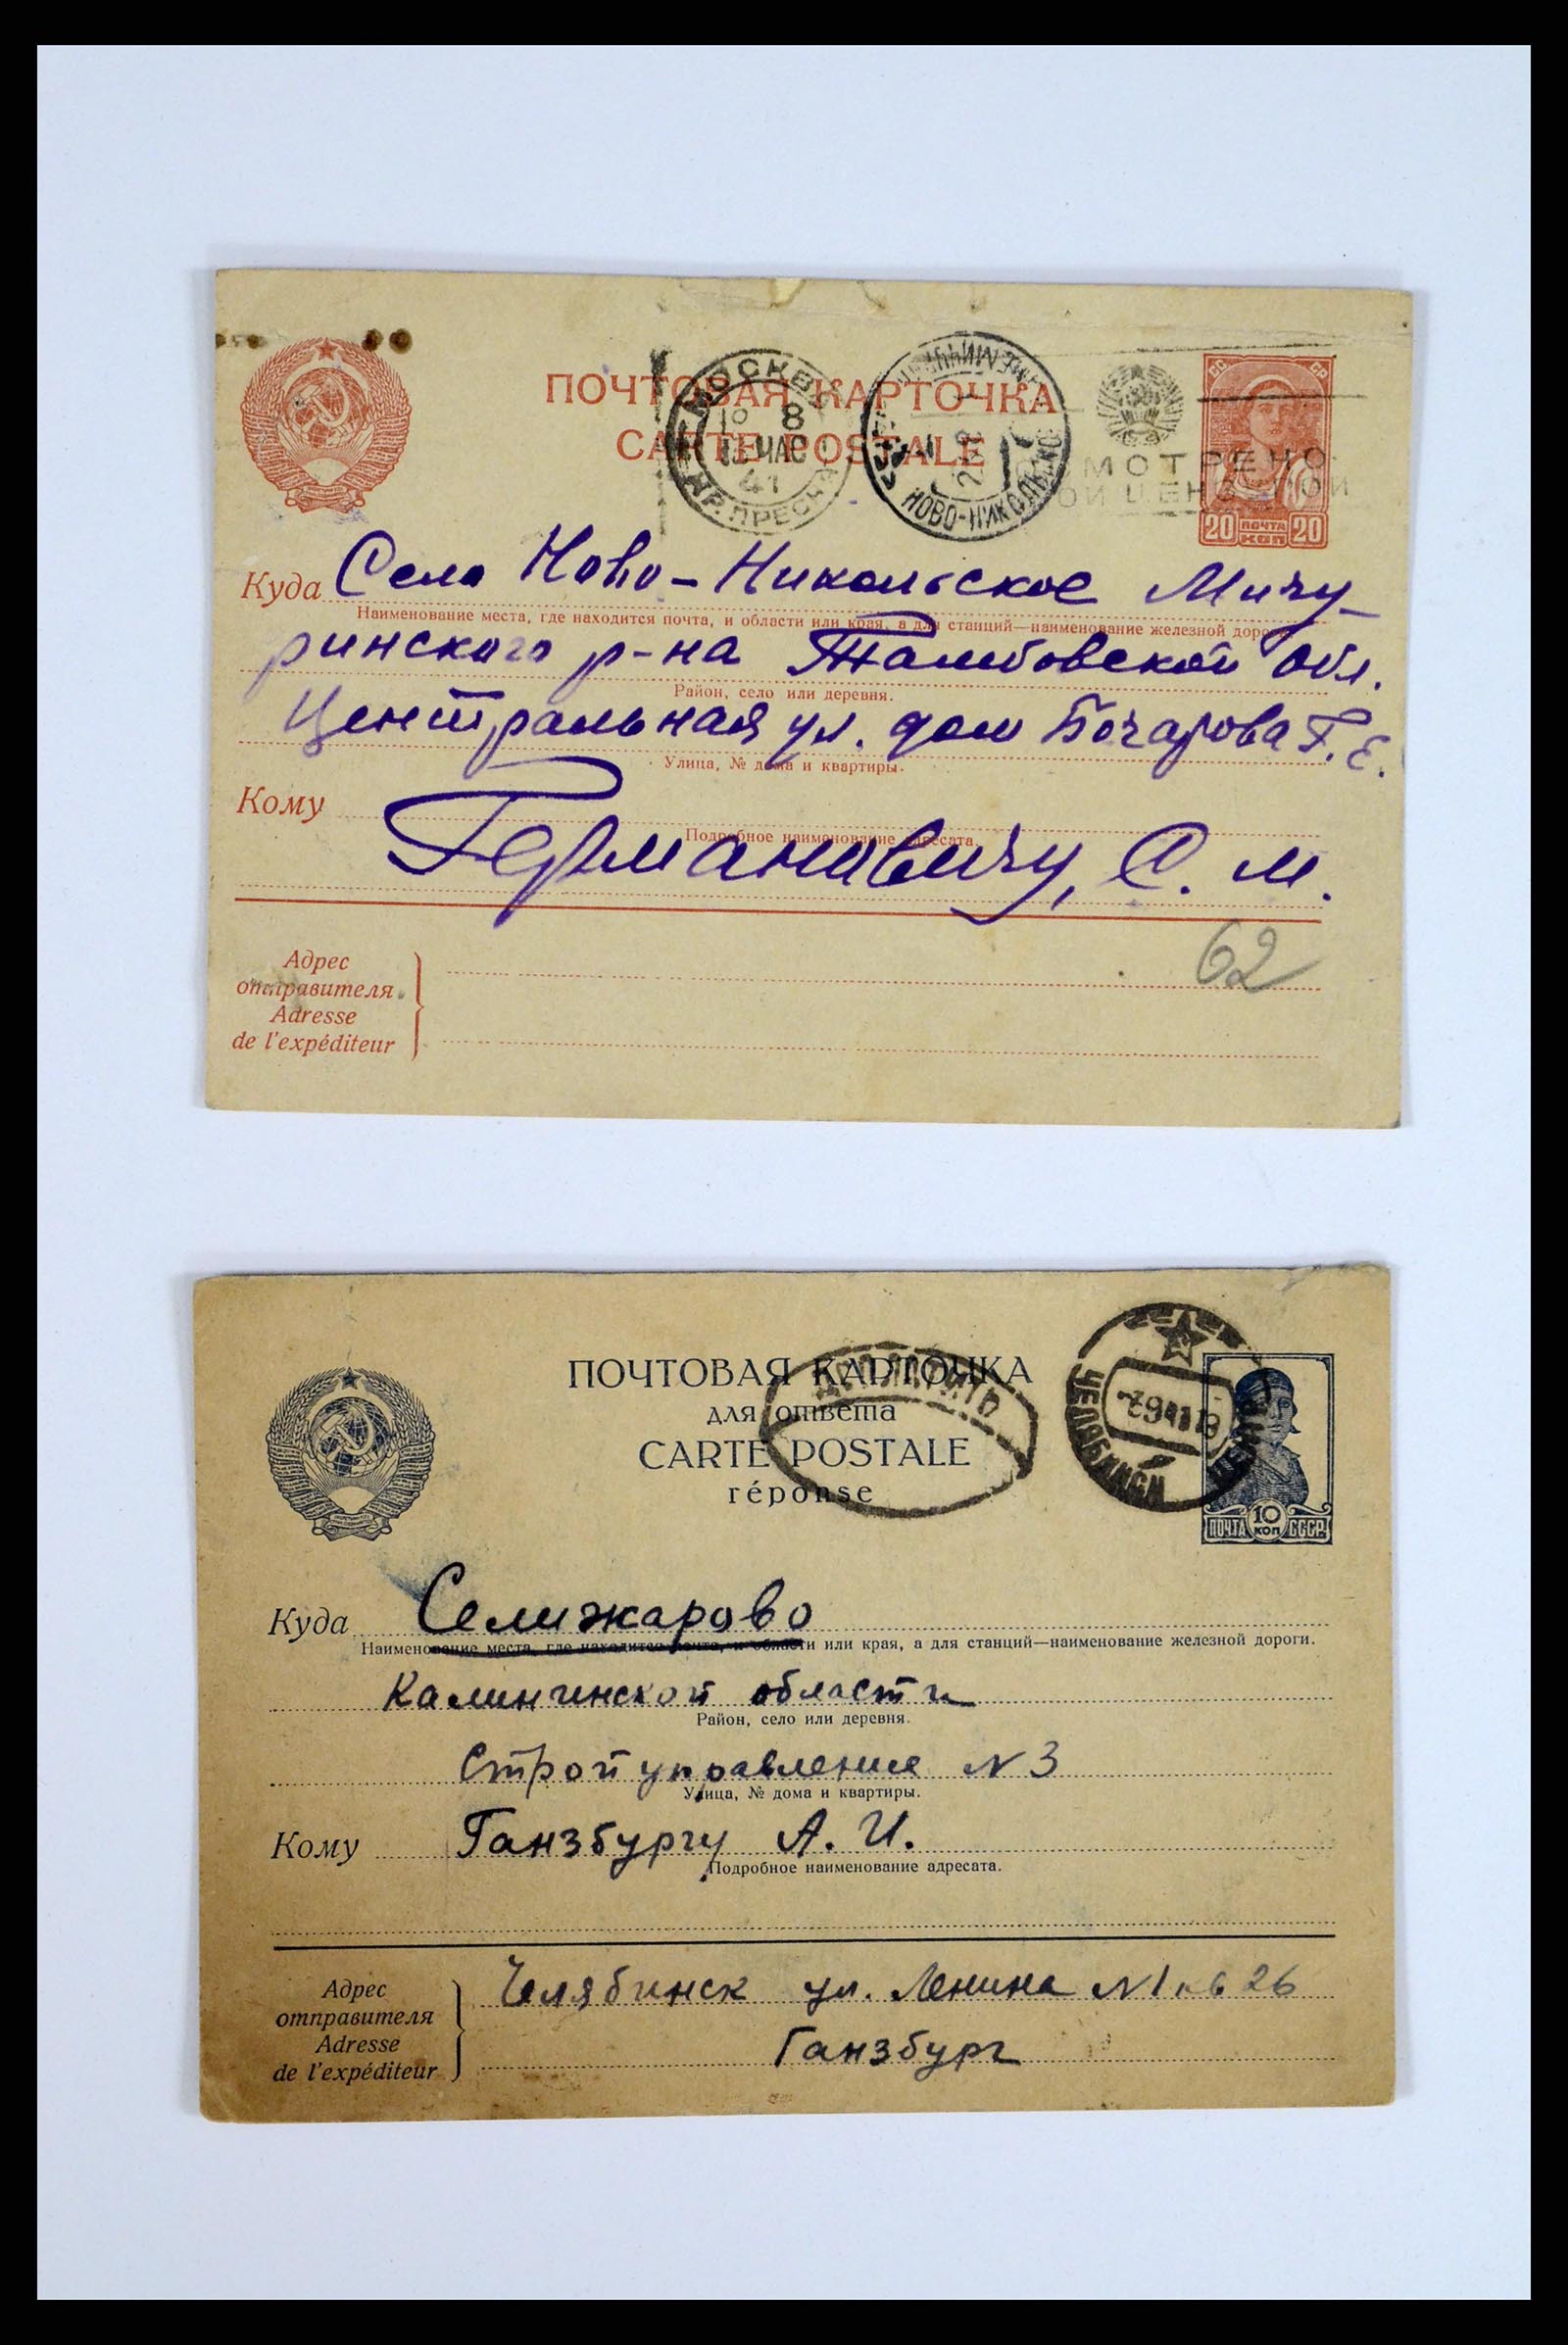 ПОЧТОВАЯ КАРТОЧКА
CARTE POSTALE
МОСКВА
8
ЧАС
41
КР. ПРЕСНЯ
НОВО-НИКОЛЬСКОЕ
СС СР
20 ПОЧТА КОП 20
Куда Село Ново-Никольское Мичу-
Наименование места, где находится почта, и области или края, а для станций—наименование железной дороги
ринского р-на Тамбовской обл.
Район, село или деревня.
Центральная ул. дом Бочарова Г. Е.
Улица, № дома и квартиры.
Кому
Подробное наименование адресата.
Германовичу, С. М.
62
Адрес
отправителя
Adresse
de l'expéditeur
ПОЧТОВАЯ КАРТОЧКА
для ответа
CARTE POSTALE
réponse
ЧЕЛЯБИНСК
ПОЧТА 10 КОП СССР
Куда Селижарово
Наименование места, где находится почта, и области или края, а для станций—наименование железной дороги.
Калининской области
Район, село или деревня.
Стройуправление N 3
Улица, № дома и квартиры.
Кому Ганзбургу А. И.
Подробное наименование адресата.
Адрес
отправителя
Adresse
de l'expéditeur
Челябинск ул. Ленина N 1 кв 26
Ганзбург